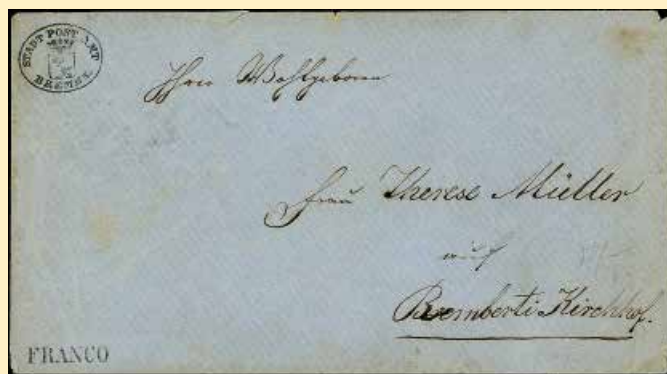 STADT POST AMT
BREMEN
Ihro Wohlgeboren
Frau Therese Müller
auf
Remberti Kirchhof.
FRANCO